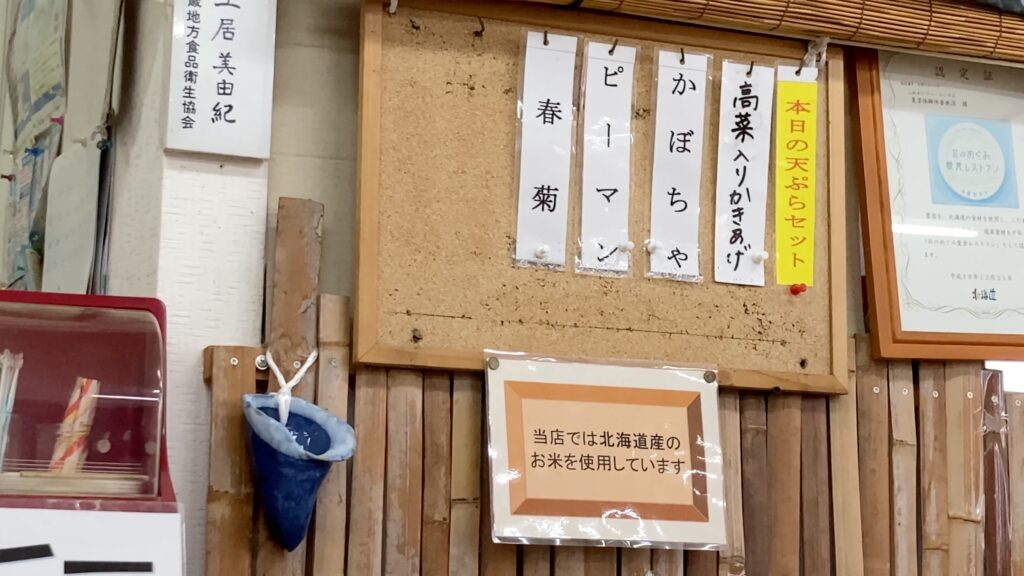 本日の天ぷらセット
高菜入りかきあげ
かぼちゃ
ピーマン
春菊
居美由紀
地方食品衛生協会
当店では北海道産の
お米を使用しています
認定証
北のめぐみ
愛食レストラン
北海道